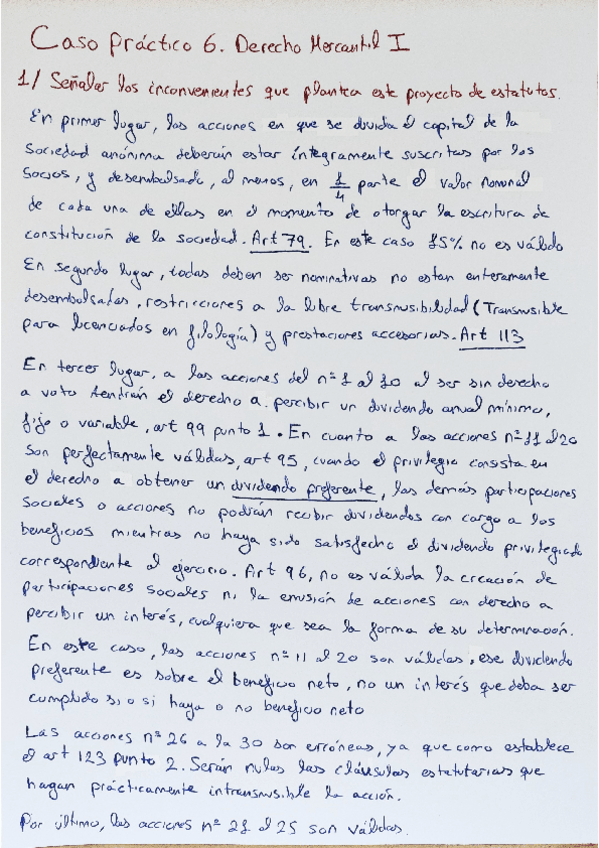 Caso práctico 6. Derecho Mercantil I
1/ Señalar los inconvenientes que plantea este proyecto de estatutos.
En primer lugar, las acciones en que se divida el capital de la
Sociedad anónima deberán estar íntegramente suscritas por los
Socios, y desembolsado, al menos, en 1/4 parte el valor nominal
de cada una de ellas en el momento de otorgar la escritura de
constitución de la sociedad. Art 79. En este caso 15% no es válido
En segundo lugar, todas deben ser nominativas no estan enteramente
desembolsadas, restricciones a la libre transmisibilidad (Transmisible
para licenciados en filología) y prestaciones accesorias. Art 113
En tercer lugar, a las acciones del nº 1 al 10 al ser sin derecho
a voto tendrán el derecho a percibir un dividendo anual mínimo,
fijo o variable, art 99 punto 1. En cuanto a las acciones nº 11 al 20
son perfectamente válidas, art 95, cuando el privilegio consista en
el derecho a obtener un dividendo preferente, las demás participaciones
sociales o acciones no podrán recibir dividendos con cargo a los
beneficios mientras no haya sido satisfecho el dividendo privilegiado
correspondiente al ejercicio. Art 96, no es válida la creación de
participaciones sociales ni la emisión de acciones con derecho a
percibir un interés, cualquiera que sea la forma de su determinación.
En este caso, las acciones nº 11 al 20 son válidas, ese dividendo
preferente es sobre el beneficio neto, no un interés que deba ser
cumplido si o si haya o no beneficio neto
Las acciones nº 26 a la 30 son erróneas, ya que como establece
el art 123 punto 2. Serán nulas las cláusulas estatutarias que
hagan prácticamente intransmisible la acción.
Por último, las acciones nº 21 al 25 son válidas.